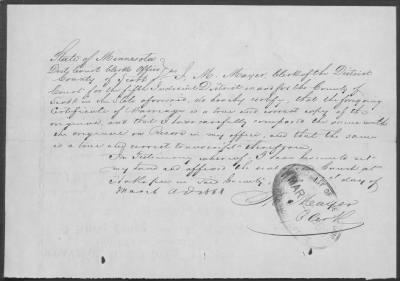 State of Minnesota
District Court Clerks Office } ss
County of Scott I, J. M. Mayer, Clerk of the District
Court for the fifth Judicial District in and for the County of
Scott in the State aforesaid, do hereby certify, that the foregoing
Certificate of Marriage is a true and correct copy of the
original, and that I have carefully compared the same with
the original on Record in my office, and that the same
is a true and correct transcript therefrom.
In Testimony whereof, I have hereunto set
my hand and affixed the seal of the Court at
Shakopee in said County, day of
March A D 188
J. M. Mayer
Clerk